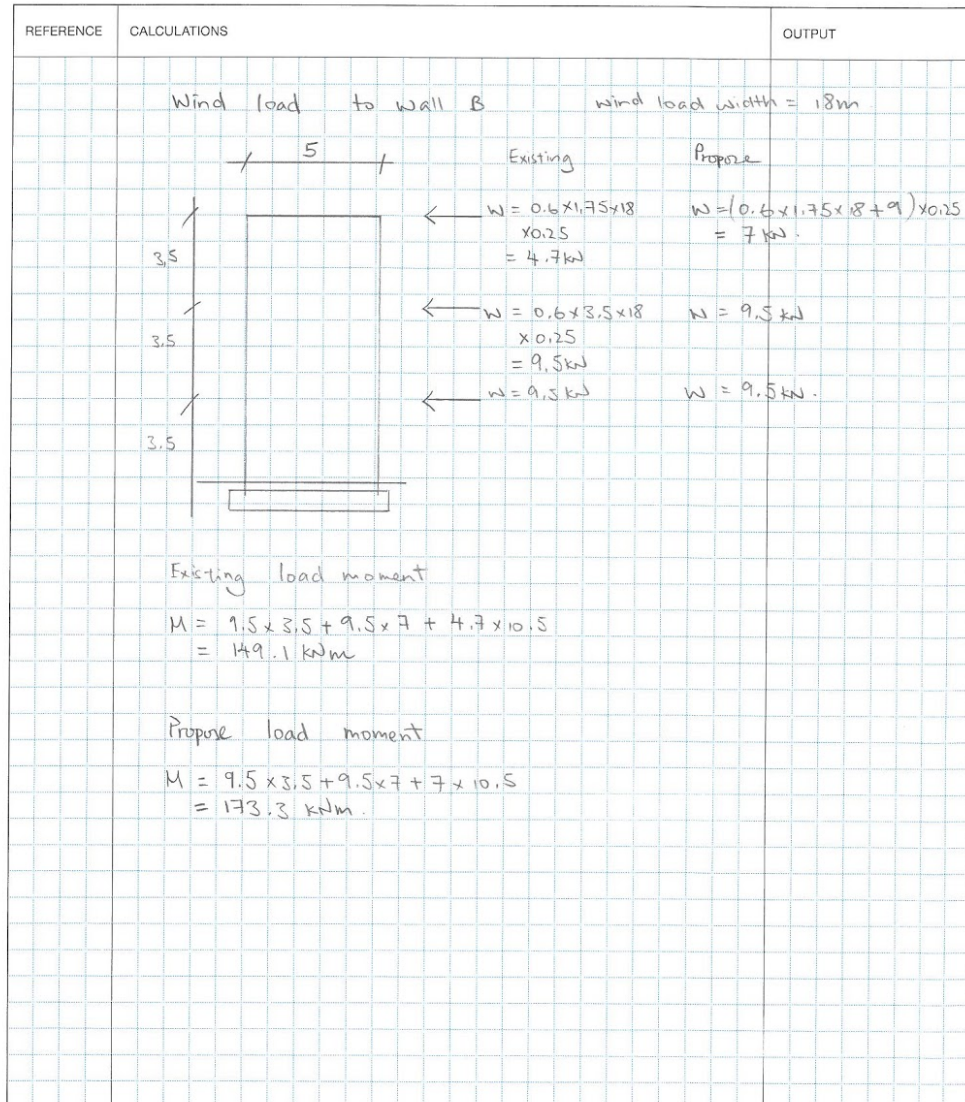 REFERENCE CALCULATIONS OUTPUT
Wind load to wall B wind load width = 18m
5 Existing Propose
W = 0.6 x 1.75 x 18 W = (0.6 x 1.75 x 18 + 9) x 0.25
x 0.25 = 7 kN.
3.5 = 4.7 kN
W = 0.6 x 3.5 x 18 W = 9.5 kN
3.5 x 0.25
= 9.5 kN
W = 9.5 kN W = 9.5 kN.
3.5
Existing load moment
M = 9.5 x 3.5 + 9.5 x 7 + 4.7 x 10.5
= 149.1 kNm
Propose load moment
M = 9.5 x 3.5 + 9.5 x 7 + 7 x 10.5
= 173.3 kNm.